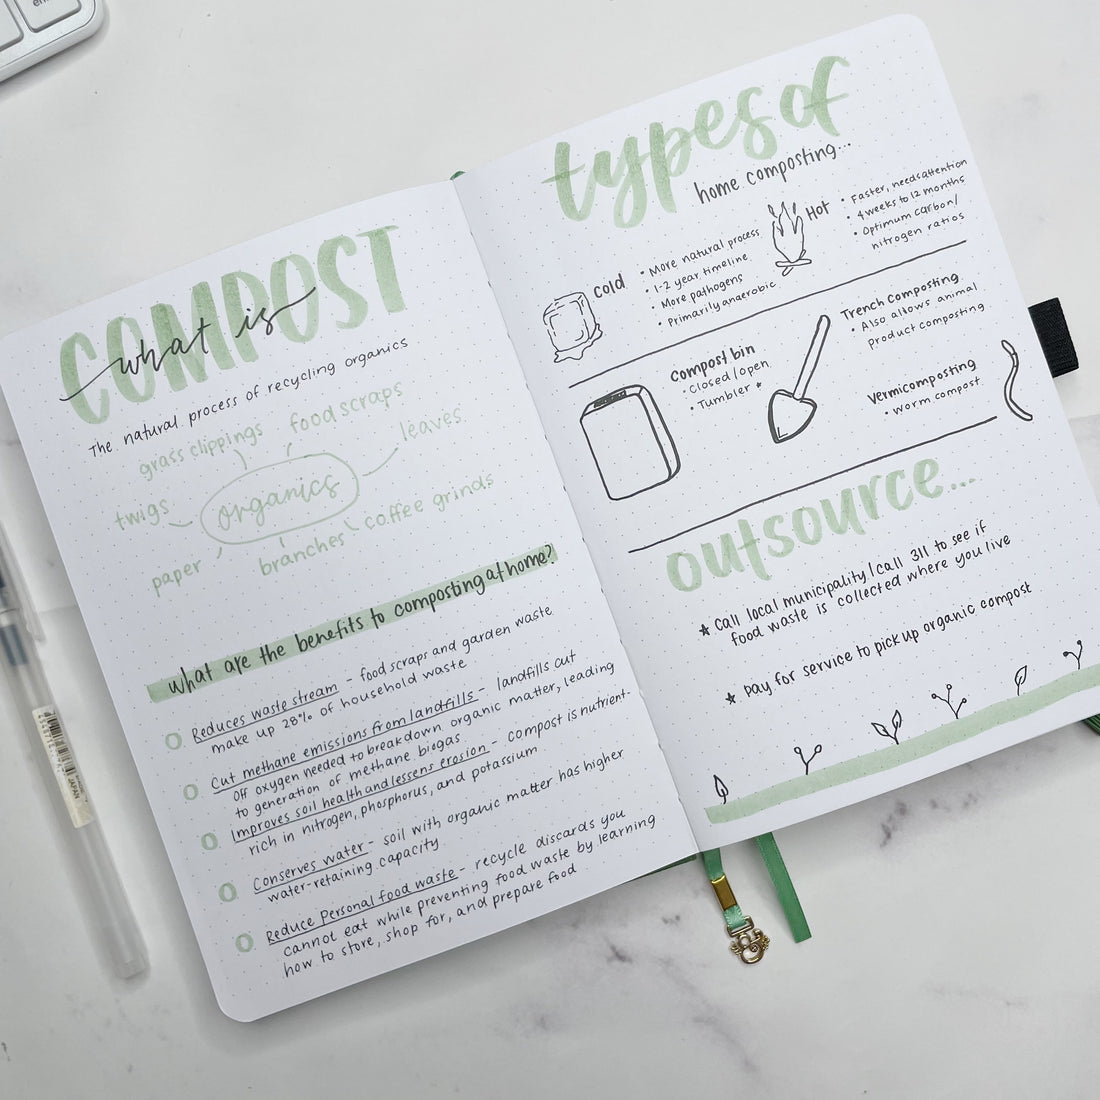 what is
COMPOST
The natural process of recycling organics
grass clippings
food scraps
leaves
twigs
organics
coffee grinds
paper
branches
what are the benefits to composting at home?
Reduces waste stream - food scraps and garden waste
make up 28% of household waste
Cut methane emissions from landfills - landfills cut
off oxygen needed to breakdown organic matter, leading
to generation of methane biogas
Improves soil health and lessens erosion - compost is nutrient-
rich in nitrogen, phosphorus, and potassium
Conserves water - soil with organic matter has higher
water-retaining capacity.
Reduce personal food waste - recycle discards you
cannot eat while preventing food waste by learning
how to store, shop for, and prepare food
types of
home composting...
Cold
• More natural process
• 1-2 year timeline
• More pathogens
• Primarily anaerobic
Hot
• Faster, needs attention
• 4 weeks to 12 months
• Optimum carbon/
nitrogen ratios
Compost bin
• Closed/open
• Tumbler ★
Trench Composting
• Also allows animal
product composting
Vermicomposting
• worm compost
outsource...
★ Call local municipality/call 311 to see if
food waste is collected where you live
★ Pay for service to pick up organic compost
JAPAN